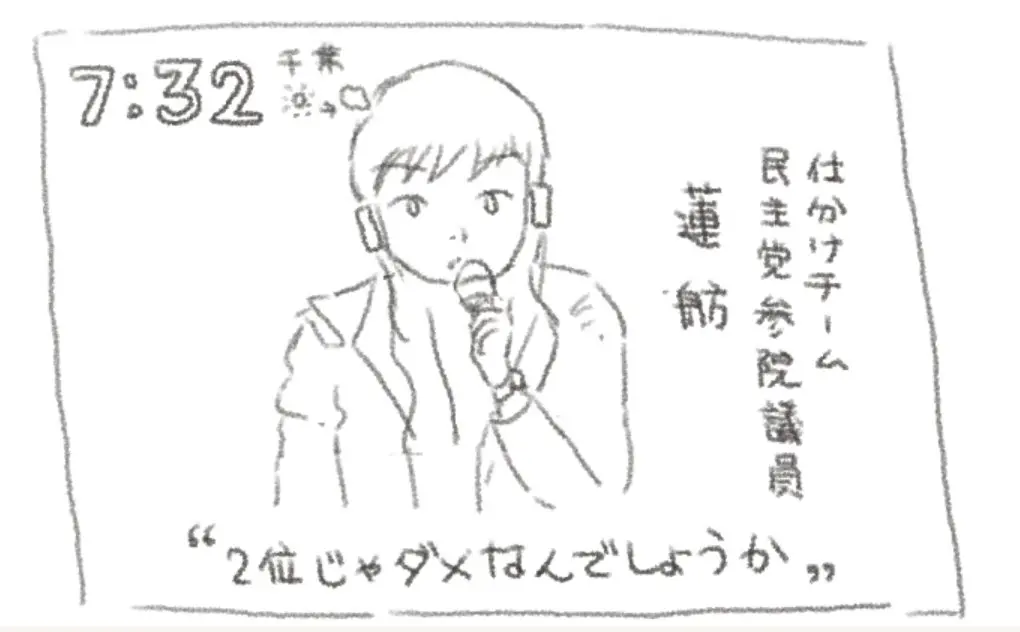 7:32
千葉
仕分けチーム
民主党参院議員
蓮舫
“2位じゃダメなんでしょうか„